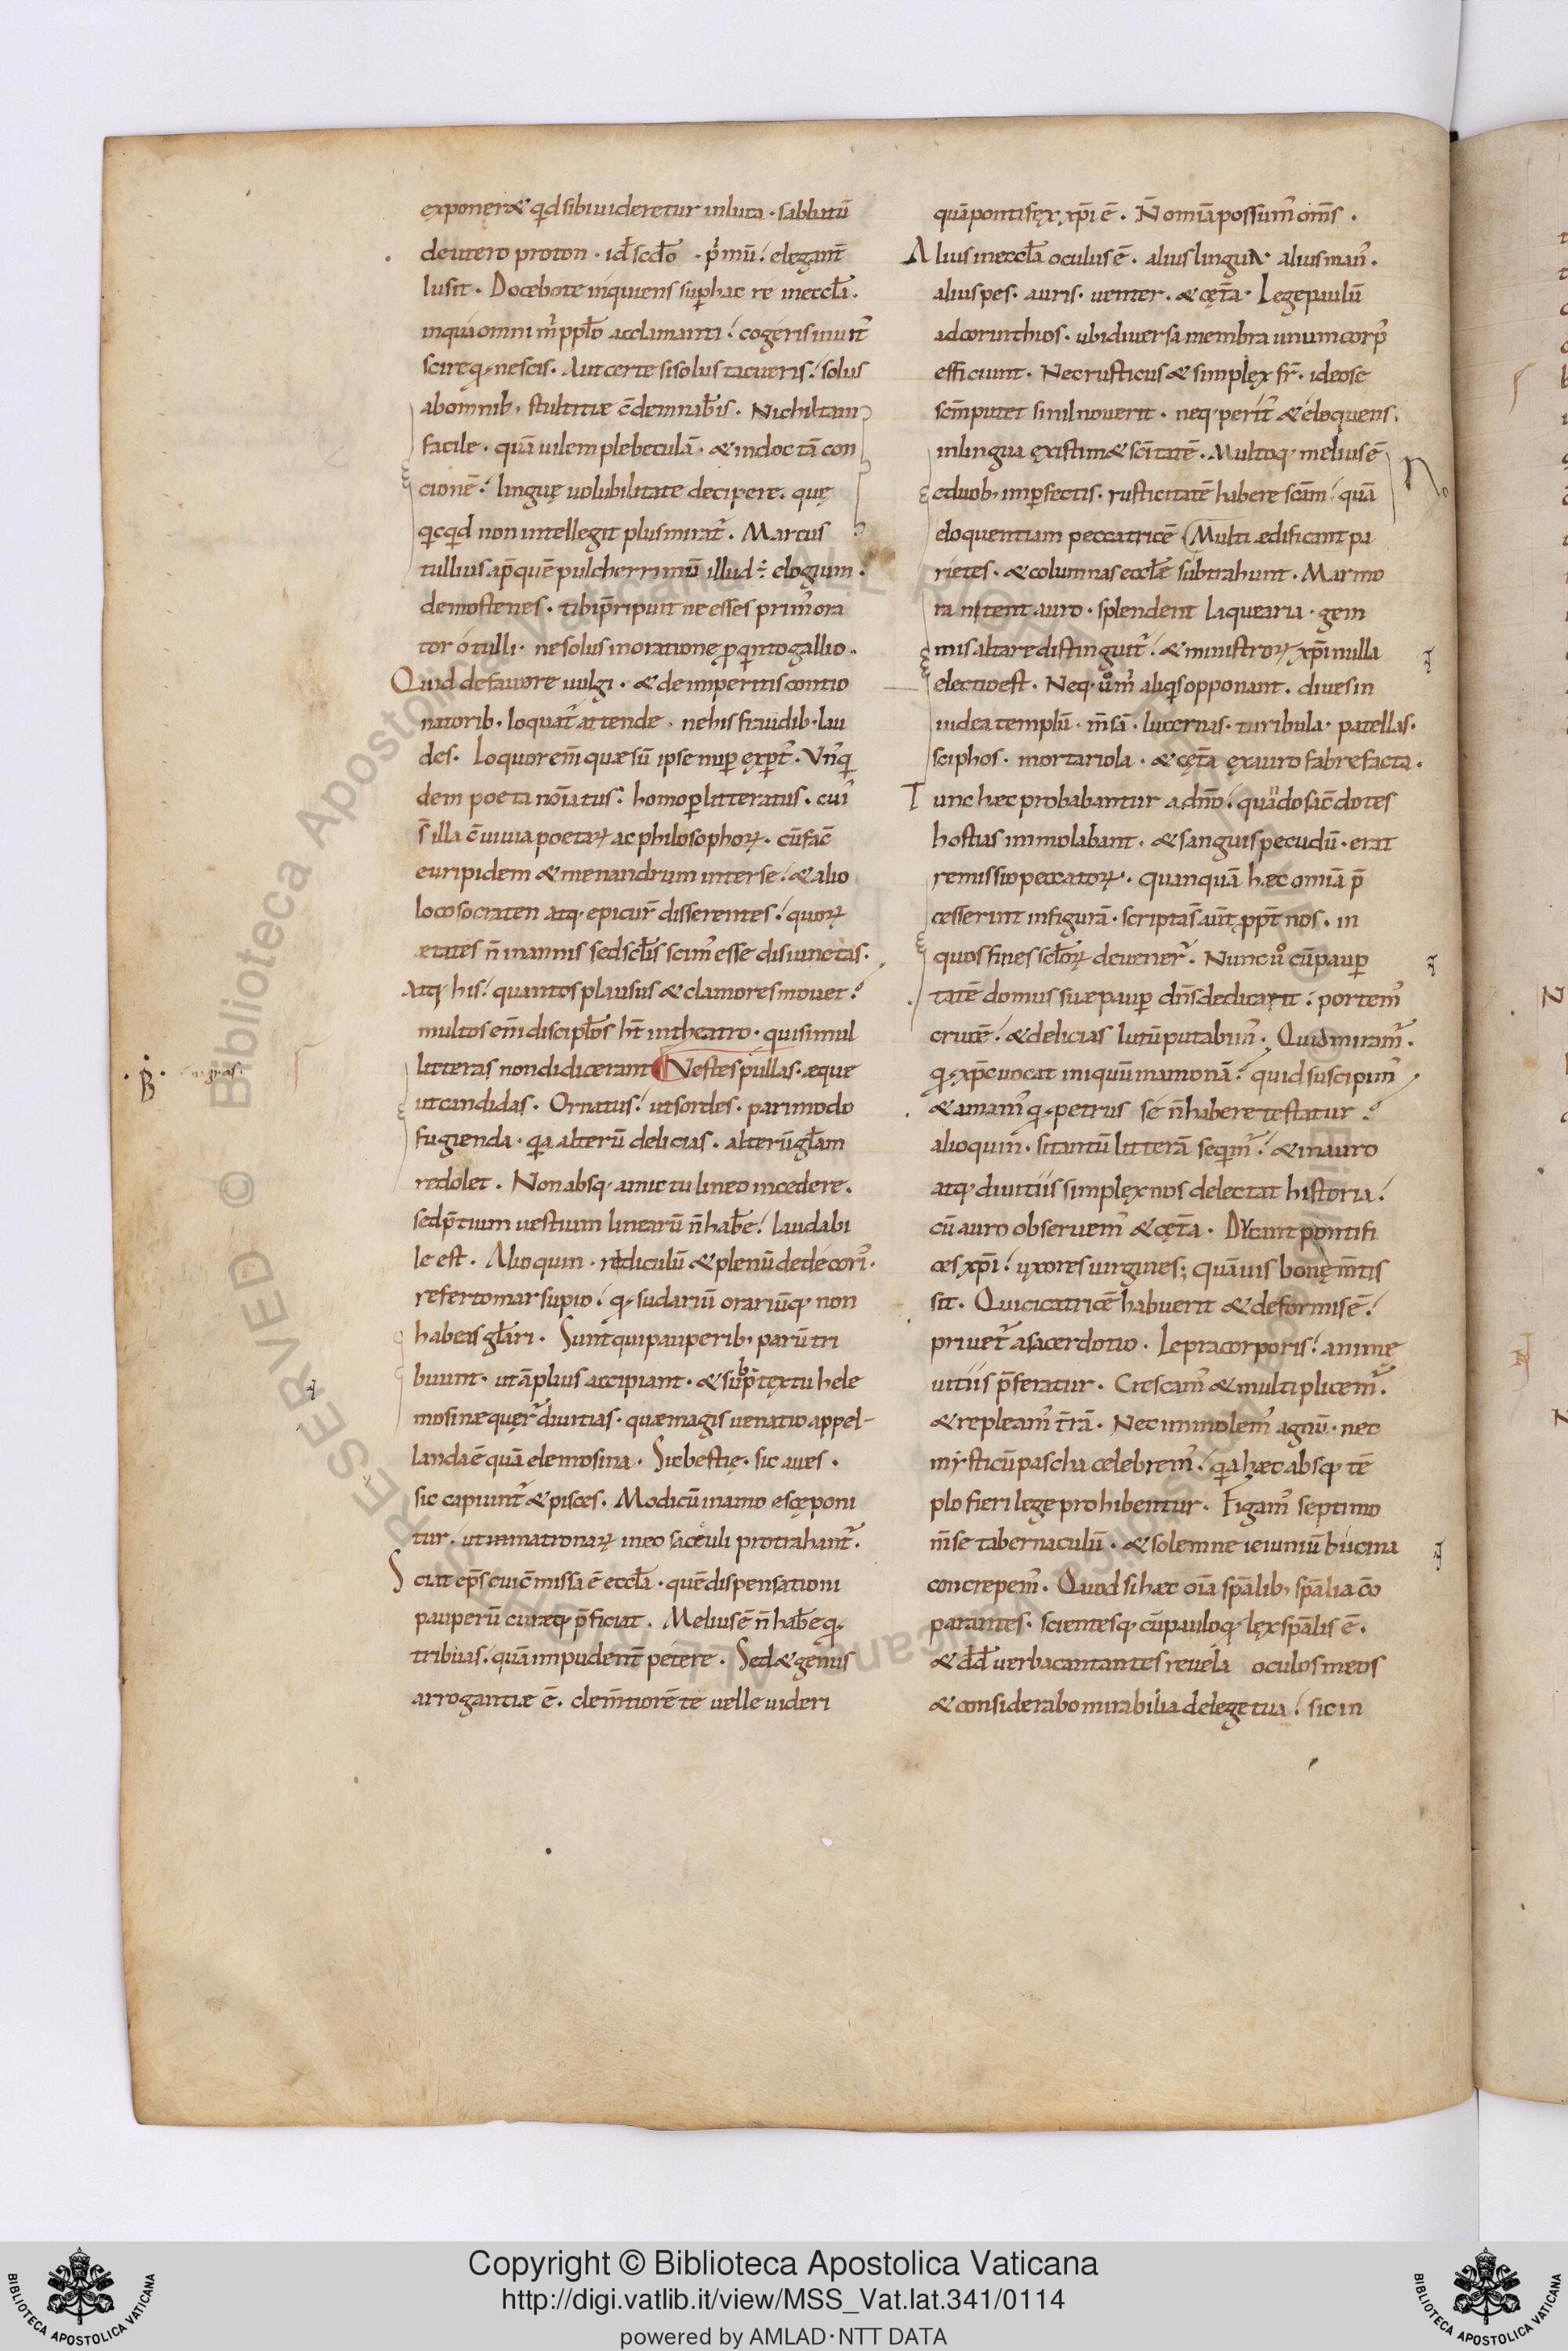 exponeret qd sibi uideretur in luca · sabbatū
deutero proton · id̄ scd̄o · p'mū ! eleganт̄
lusit · Docebo te inquiens sup hac re in eccl̄a ·
in qua omni m̄ ppl̄o acclamanti ! cogeris inuit᷒
scire q nescis · Aut certe si solus tacueris ! solus
ab omnib; stultitiæ c̄demnab̄is · Nichil tam
facile · quā uilem plebeculā · & indoctā con
cionē ! linguę uolubilitate decipere · quę
qcqd non intellegit plus mirat᷒ · Marcus
tullius ap̄ quē pulcherrimū illud ÷ elogium ·
demostenes · tibi p̄ripuit ne esses prim᷒ ora
tor ó tulli · ne solus in oratione p qinto gallio ·
Quid de fauore uulgi · & de imperitis contio
natorib · loquat᷒ attende · ne his fraudib · lau
des · Loquor em̄ quæ sū ipse nup expt᷒ · Vn᷒ q
dem poeta nōiatus · homo plitteratus · cui᷒
s̄ illa c̄uiuia poetaꝝ ac philosophoꝝ · cū fac̄
euripidem & menandrum inter se ! & alio
loco socraten atq · epicur̄ disserentes ! quoꝝ
ætates n̄ in annis sed scl̄is scim᷒ esse disiunctas ·
Atq · his ! quantos plausus & clamores mouet ?
multos em̄ discipl̄os ht̄ in theatro · qui simul
litteras non didicerant Vestes pullas · æque
ut candidas · Ornatus ! ut sordes · pari modo
fugienda · qa alterū delicias · alterū gl̄am
redolet · Non absq · amictu lineo incedere ·
sed p̄tium uestium linearū n̄ hab̄e ! laudabi
le est · Alioquin · rediculū & plenū dedecori᷒ ·
referto marsupio ! q sudariū orariūq · non
habeas gl̄ari · Sunt qui pauperib; parū tri
buunt · ut āplius accipiant · & sub p̄textu hele
mosinæ quęr᷒ diuitias · quæ magis uenatio appel-
landa ē quā elemosina · Sic bestię · sic aues ·
sic capiunt᷒ & pisces · Modicū in amo escę poni
tur · ut matronaꝝ in eo sacculi protrahant᷒ ·
Sciat ep̄s cui c̄missa ē eccl̄a · quē dispensationi
pauperū curæq · p̄ficiat · Melius ē n̄ hab̄e q
tribuas · quā impudenт̄ petere · Sed & genus
arrogantiæ ē · clem̄tiorē te uelle uideri
quā pontifex xp̄i ē · N̄ om̄ia possum᷒ om̄s ·
Alius in eccl̄a oculus ē · alius lingua · alius man᷒ ·
alius pes · auris · uenter · & cęt̄a · Lege paulū
ad corinthios · ubi diuersa membra unum corp᷒
efficiunt · Nec rusticus & simplex fr̄ · ideo se
scm̄ putet si nil nouerit · neq · perit᷒ & eloquens ·
in lingua existimet scītatē · Multoq · melius ē
e duob; imperfectis · rusticitatē habere scām ! quā
eloquentiam peccatricē · Multi ædificant pa
rietes · & columnas eccl̄æ subtrahunt · Marmo
ra nitent auro · splendent laquearia · gem
mis altare distinguit᷒ ! & ministroꝝ xp̄i nulla
electio est · Neq · u̇m᷒ aliqs opponant · diues in
iudea templū · m̄sā · lucernas · turibula · patellas ·
sciphos · mortariola · & cęt̄a ex auro fabrefacta ·
Tunc hæc probabantur a dn̄o ! quando sac̄dotes
hostias immolabant · & sanguis pecudū · erat
remissio peccatoꝝ · quanquā hæc om̄ia p̄
cesserint in figurā · scripta s̄ aūt ppt̄ nos · in
quos fines scl̄oꝝ deuener᷒ · Nunc u̇ cū paup
tatē domus suæ paup dn̄s dedicarit ! portem᷒
crucē ! & delicias lutū putabim᷒ · Quid miram᷒ ·
q xp̄c uocat iniquū mamonā ? quid suscipim᷒
& amam᷒ q petrus se n̄ habere testatur ?
alioquin · si tantū litterā seqim᷒ ! & in auro
atq · diuitiis simplex nos delectat historia !
cū auro obseruem᷒ & cęt̄a · Ducant pontifi
ces xp̄i ! uxores uirgines ; quāuis bonę m̄tis
sit · Qui cicatricē habuerit & deformis ē !
priuet᷒ a sacerdotio · Lepra corporis ! animę
uitiis p̄feratur · Crescam᷒ & multiplicem᷒ ·
& repleam᷒ t̄rā · Nec immolem᷒ agnū · nec
mysticū pascha celebrem᷒ ! qa hæc absq · tē
plo fieri lege prohibentur · Figam᷒ septimo
m̄se tabernaculū · & solemne ieiuniū bucina
concrepem᷒ · Quod si hæc oīa sp̄alib; sp̄alia cō
parantes · scientesq · cū paulo q · lex sp̄alis ē ·
& d̄d uerba cantantes reuela oculos meos
& considerabo mirabilia de lege tua ! sic in
Copyright © Biblioteca Apostolica Vaticana
http://digi.vatlib.it/view/MSS_Vat.lat.341/0114
powered by AMLAD·NTT DATA
BIBLIOTECA APOSTOLICA VATICANA
BIBLIOTECA APOSTOLICA VATICANA